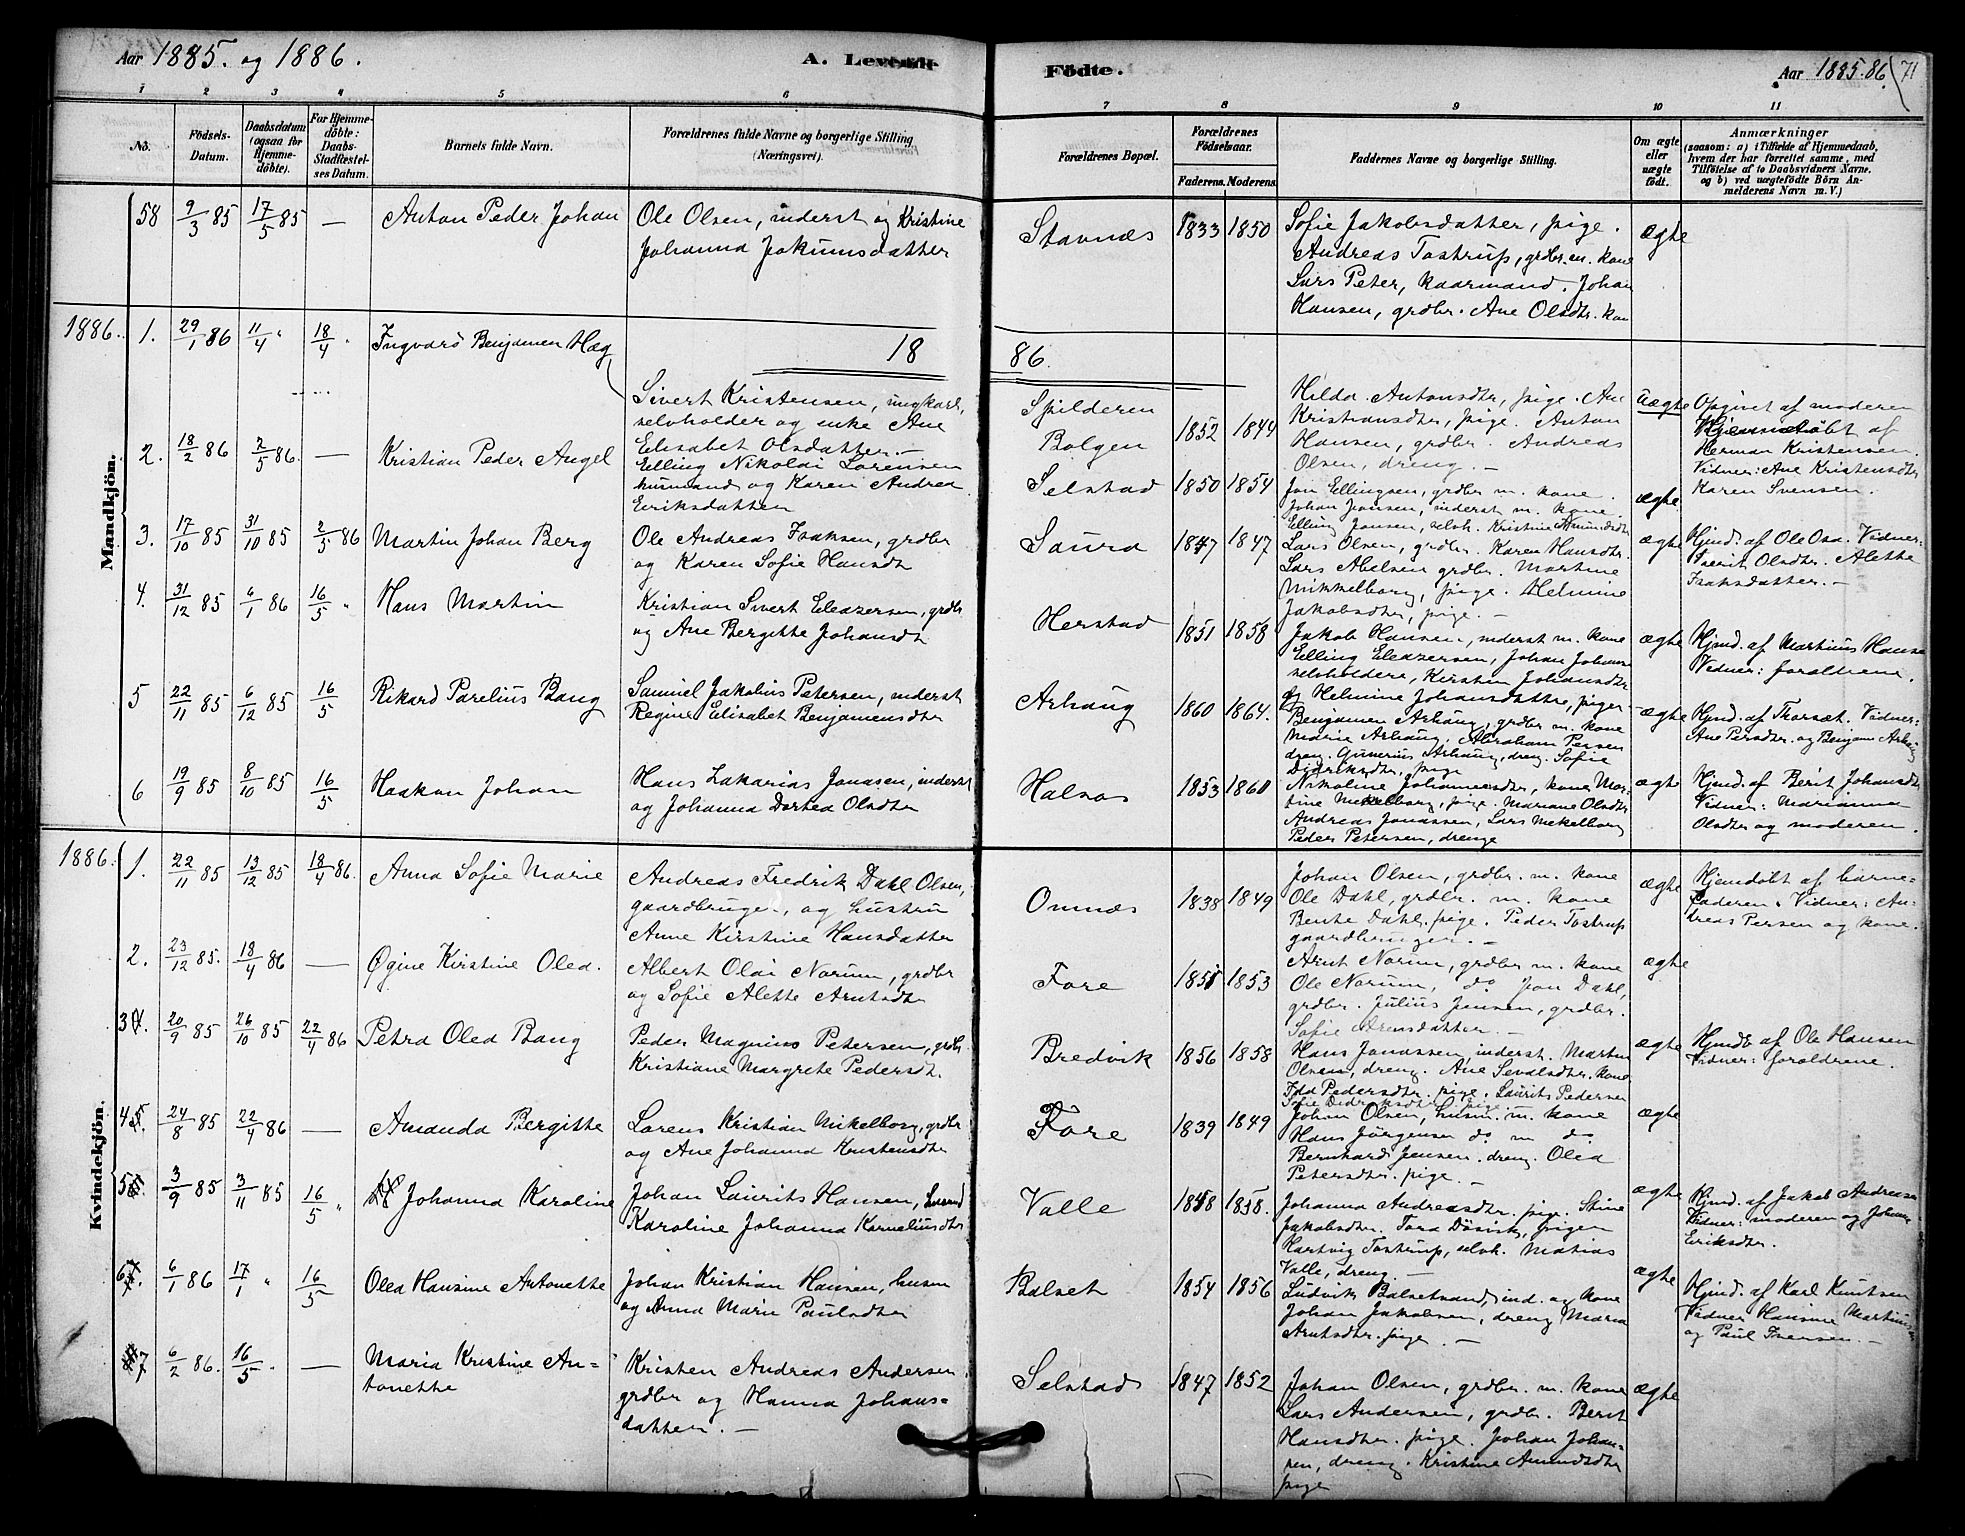 Aar 1885. og 1886.
A. Levende
Födte.
Aar 1885.86.
71
1 2 3 4 5 6 7 8 9 10 11
No.
Födsels-
Datum.
Daabsdatum
(ogsaa for
Hjemme-
döbte).
For Hjemme-
döbte:
Daabs-
Stadfæstel-
ses Datum.
Barnets fulde Navn.
Forældrenes fulde Navne og borgerlige Stilling
(Næringsvei).
Forældrenes Bopæl.
Forældrenes
Födselsaar.
Faderens. Moderens.
Faddernes Navne og borgerlige Stilling.
Om ægte
eller
uægte
födt.
Anmærkninger
(saasom: a) i Tilfælde af Hjemmedaab,
hvem der har forrettet samme, med
Tilföielse af to Daabsvidners Navne.
og b) ved uægtefödte Börn An-
melderens Navn m. V.)
58 9/3 85 17/5 85 — Anton Peder Johan
Ole Olsen, inderst og Kristine
Johanna Jakumsdatter
Stavnæs 1833 1850
Sofie Jakobsdatter, pige.
Andreas Tostrup, grdbr. m. kone
Lars Peter, kaarmand. Johan
Hansen, grdbr. Ane Olsdtr. kone
ægte
18 86.
Mandkjön.
1886. 1. 29/1 86 11/4 " 18/4 " Ingvard Benjamen Hæg
Sivert Kristensen, ungkarl,
selvholder og enke Ane
Elisabet Olsdatter. —
Spilderen
Bolgen
1852 1844
Hilda Antonsdtr, pige. Ane
Kristiansdtr, pige. Anton
Hansen, grdbr. Andreas
Olsen, dreng. —
uægte
Opgivet af moderen
Hjemmedöbt af
Herman Kristensen.
Vidner: Ane Kristensdtr
Karen Svensen.
2. 18/2 86 2/5 86. — Kristian Peder Angel
Elling Nikolai Lorensen
husmand og Karen Andrea
Eriksdatter
Selstad 1850 1854
Jon Ellingsen, grdbr m. kone.
Johan Jensen, inderst m. kone.
Elling Jonsen, selvh. Kristine Amundsdtr
ægte
3. 17/10 85 31/10 85 2/5 86 Martin Johan Berg
Ole Andreas Isaksen, grdbr
og Karen Sofie Hansdt
Saura 1847 1847
Lars Olsen, grdbr. Karen Hansdtr.
Lars Abelsen grdbr. Martine
Mikkelborg, pige. Helmine
Jakobsdtr, pige. —
ægte
Hjmd. af Ole Osa. Vidner:
Berit Olsdtr. Alette
Isaksdatter. —
4. 31/12 85 6/1 86 16/5 " Hans Martin
Kristian Sivert Eleazersen, grdbr
og Ane Bergitte Johansdt
Herstad 1851 1858
Jakob Hansen, inderst m. kone
Elling Eleazersen, Johan Johans
selvholdere, Kirsten Johansdtr
og Helmine Johansdatter, piger
ægte
Hjmd. af Martinus Hansen
Vidner: foraldrene.
5 22/11 85 6/12 85 16/5 Rikard Parelius Bang
Samuel Jakobus Petersen, inderst
Regine Elisabet Benjamensdtr
Arhaug 1860 1864.
Benjamen Arhaug, grdbr m. kone
Marie Arhaug. Abraham Persen
dreng. Gunerius Arhaug, dreng. Sofie
Didriksdtr, pige
ægte
Hjmd. af Thorsæt. Vidner:
Ane Persdtr. og Benjam. Arhaug
6 19/9 85 8/10 85 16/5 Haakon Johan
Hans Zakarias Jonasen, inderst
og Johanna Dortea Olsdtr
Halsos 1853 1860
Nikoline Johannesdtr, kone Mar-
tine Mekelborg, pige. Mariane Olsdtr
Andreas Jonassen, Lars Mekelborg
Peder Petersen, drenge
ægte
Hjmd. af Berit Johansdtr
Vidner: Marianna
Olsdtr og moderen.
Kvindekjön.
1886. 1. 22/11 85 13/12 85 18/4 86. Anna Sofie Marie
Andreas Fredrik Dahl Olsen,
gaardbruge., og hustru
Anne Kirstine Hansdatter
Omnæs 1838 1849
Johan Olsen, grdbr. m. kone
Ole Dahl, grdbr. m. kone
Bente Dahl, pige. Peder Tostrup
gaardbruger. —
ægte
Hjemdöbt af barne-
faderen. Vidner: An-
dreas Persen og kone.
2. 23/12 85. 18/4 86 — Øgine Kirstine Olea.
Albert Olai Norum, grdbr
og Sofie Alette Arntsdtr
Fore 1851 1853
Arnt Norum, grdbr m. kone
Ole Norum, do Jon Dahl,
grdbr. Julius Jensen, grdbr.
Sofie Arensdatter. —
ægte
3. 20/9 85 26/10 85 22/4 86 Petra Olea Bang
Peder Magnus Petersen, grdbr.
Kristiane Margrete Pedersdt.
Bredvik 1856 1858
Hans Jonassen, inderst. Martin
Olsen, dreng. Ane Sevalsdtr. kone
Ida Pedersdtr. pige. Laurits Pedersen
Sofie Didriksdtr pige
ægte
Hjmdb af Ole Hansen
Vidner: foraldrene.
4. 24/8 85 22/4 86 — Amanda Bergitte
Lorens Kristian Mikelborg, grdbr
og Ane Johanna Kristensdtr
Fore 1839 1849
Johan Olsen, husm. m. kone
Hans Jörgensen do m do
Bernhard Jensen. dreng. Olea
Petersdtr. pige. —
ægte
5. 3/9 85 3/11 85 16/5 " Johanna Karoline
Johan Laurits Hansen,
Karoline Johanna Korneliusdtr
Valle 1858 1858.
Johanna Andreasdtr. pige. Stine
Jakobsdtr. Tora Dösvik, piger
Hartvig Tostrup, selvh. Matias
Valle, dreng. —
ægte
Hjmd. af Jakob Andreasen
Vidner: moderen og Johanna
Eriksdtr.
6. 6/1 86 17/1 " 16/5 Olea Hansine Antonette
Johan Kristian Hansen, husm
og Anna Marie Paulsdtr
Balset 1854 1856
Ludvik Balsetvand, ind. og kone
Johan Jakobsen, dreng Maria
Arntsdtr. pige. —
ægte
Hjmd. af Karl Knutsen
Vidner Hansine Martinus
og Paul Iversen. —
7 6/2 86. 16/5 " — Maria Kristine An-
tonette
Kristen Andreas Andersen
grdbr og Hanna Johans-
datter. —
Selstad 1847 1852
Johan Olsen, grdbr. m. kone
Lars Andersen, grdbr. Berit
Hansdtr. pige. Johan Johan-
sen, dreng. Kristine Amundsdtr
pige
ægte